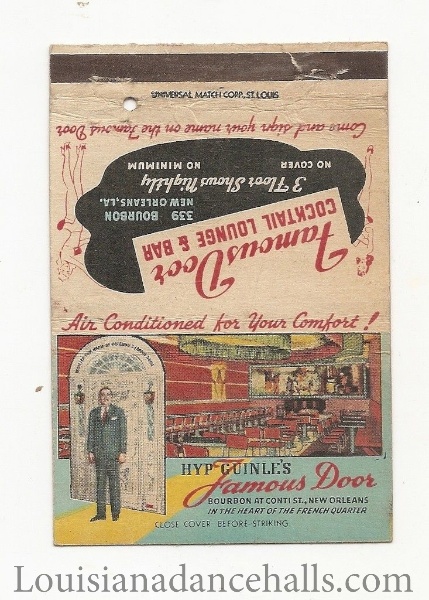 UNIVERSAL MATCH CORP., ST. LOUIS
Come and sign your name on the Famous Door
Famous Door
COCKTAIL LOUNGE & BAR
339 BOURBON
NEW ORLEANS, LA.
3 Floor Shows Nightly
NO COVER
NO MINIMUM
Air Conditioned for Your Comfort!
HYP GUINLE'S
Famous Door
BOURBON AT CONTI ST., NEW ORLEANS
IN THE HEART OF THE FRENCH QUARTER
CLOSE COVER BEFORE STRIKING
Louisianadancehalls.com